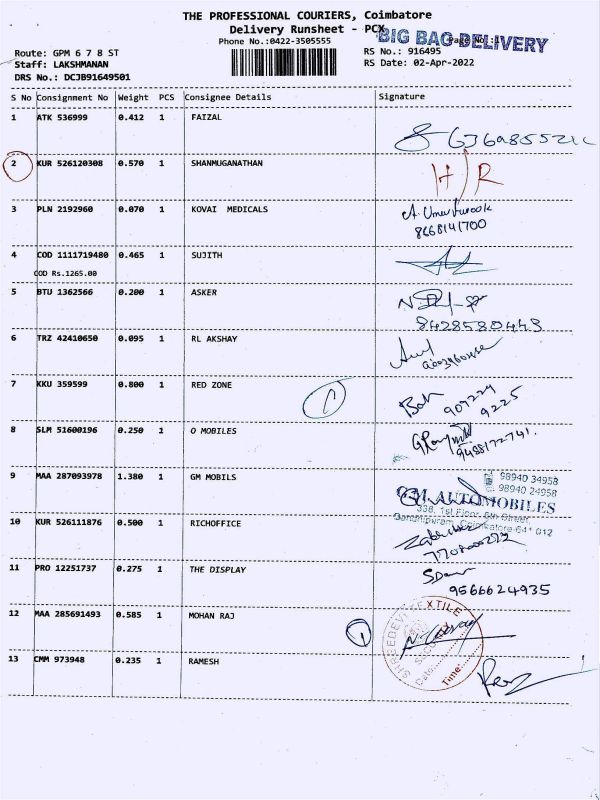 THE PROFESSIONAL COURIERS, Coimbatore
Delivery Runsheet - PCX
BIG BAG DELIVERY
Phone No.:0422-3505555
Page No.:1
Route: GPM 6 7 8 ST
RS No.: 916495
Staff: LAKSHMANAN
RS Date: 02-Apr-2022
DRS No.: DCJB91649501
S No Consignment No Weight PCS Consignee Details Signature
1 ATK 536999 0.412 1 FAIZAL
2 KUR 526120308 0.570 1 SHANMUGANATHAN H/R
3 PLN 2192960 0.070 1 KOVAI MEDICALS
8668141700
4 COD 1111719480 0.465 1 SUJITH
COD Rs.1265.00
5 BTU 1362566 0.200 1 ASKER
8428580448
6 TRZ 42410650 0.095 1 RL AKSHAY
7 KKU 359599 0.800 1 RED ZONE
9225
8 SLM 51600196 0.250 1 O MOBILES
9488172741.
9 MAA 287093978 1.380 1 GM MOBILS
98940 34958
98940 24958
G.M. AUTOMOBILES
338, 1st Floor, 6th Street,
Gandhipuram, Coimbatore-641 012
10 KUR 526111876 0.500 1 RICHOFFICE
11 PRO 12251737 0.275 1 THE DISPLAY
9566624935
12 MAA 285691493 0.585 1 MOHAN RAJ 1
SHREEDEVI TEXTILE
Date:
Time:
13 CMM 973948 0.235 1 RAMESH